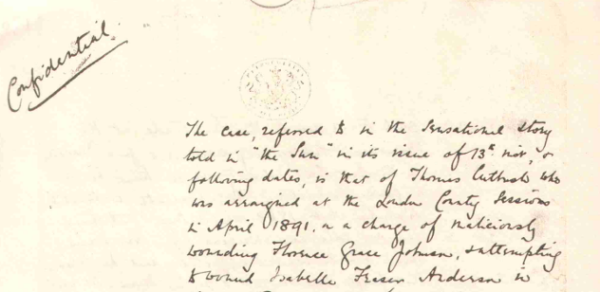 Confidential.
The case, referred to in the sensational story
told in "the Sun" in its issue of 13th inst, &
following dates, is that of Thomas Cutbush who
was arraigned at the London County Sessions
in April 1891, on a charge of maliciously
wounding Florence Grace Johnson, & attempting
to wound Isabelle Fraser Anderson in